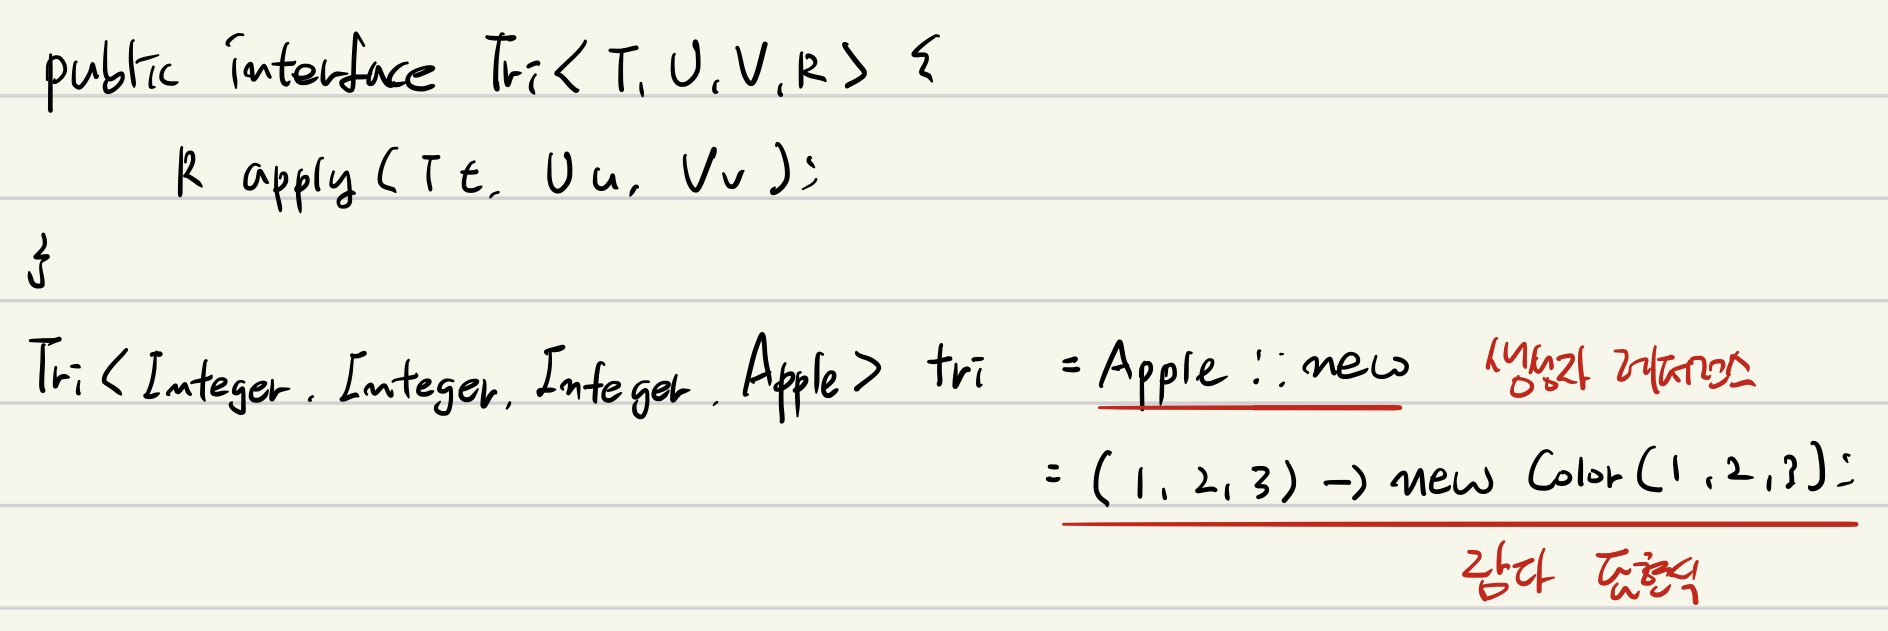 public interface Tri<T, U, V, R> {
R apply(T t, U u, V v);
}
Tri<Integer, Integer, Integer, Apple> tri = Apple::new 생성자 레퍼런스
= (1, 2, 3) -> new Color(1, 2, 3);
람다 표현식